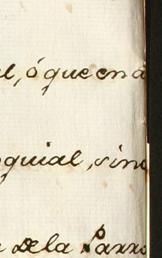 l, ó que en a
quial, sino
de la Parro